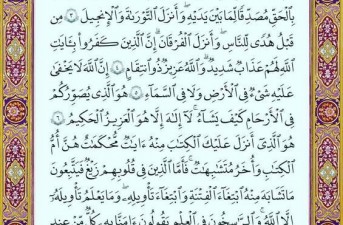 بِٱلْحَقِّ مُصَدِّقًا لِّمَا بَيْنَ يَدَيْهِ وَأَنزَلَ ٱلتَّوْرَىٰةَ وَٱلْإِنجِيلَ ٣ مِن
قَبْلُ هُدًى لِّلنَّاسِ وَأَنزَلَ ٱلْفُرْقَانَ إِنَّ ٱلَّذِينَ كَفَرُوا۟ بِـَٔايَٰتِ
ٱللَّهِ لَهُمْ عَذَابٌ شَدِيدٌ وَٱللَّهُ عَزِيزٌ ذُو ٱنتِقَامٍ ٤ إِنَّ ٱللَّهَ لَا يَخْفَىٰ
عَلَيْهِ شَىْءٌ فِى ٱلْأَرْضِ وَلَا فِى ٱلسَّمَآءِ ٥ هُوَ ٱلَّذِى يُصَوِّرُكُمْ
فِى ٱلْأَرْحَامِ كَيْفَ يَشَآءُ لَآ إِلَٰهَ إِلَّا هُوَ ٱلْعَزِيزُ ٱلْحَكِيمُ ٦
هُوَ ٱلَّذِىٓ أَنزَلَ عَلَيْكَ ٱلْكِتَٰبَ مِنْهُ ءَايَٰتٌ مُّحْكَمَٰتٌ هُنَّ أُمُّ
ٱلْكِتَٰبِ وَأُخَرُ مُتَشَٰبِهَٰتٌ فَأَمَّا ٱلَّذِينَ فِى قُلُوبِهِمْ زَيْغٌ فَيَتَّبِعُونَ
مَا تَشَٰبَهَ مِنْهُ ٱبْتِغَآءَ ٱلْفِتْنَةِ وَٱبْتِغَآءَ تَأْوِيلِهِۦ وَمَا يَعْلَمُ تَأْوِيلَهُۥٓ
إِلَّا ٱللَّهُ وَٱلرَّٰسِخُونَ فِى ٱلْعِلْمِ يَقُولُونَ ءَامَنَّا بِهِۦ كُلٌّ مِّنْ عِندِ